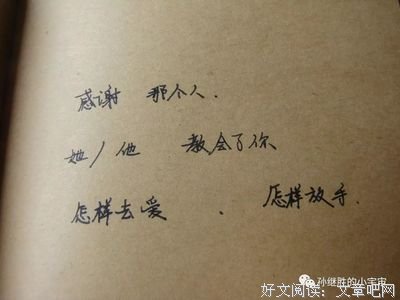 感谢 那个人.
她/他 教会了你
怎样去爱 . 怎样放手.
孙继胜的小宝宝
好文阅读：文章吧网